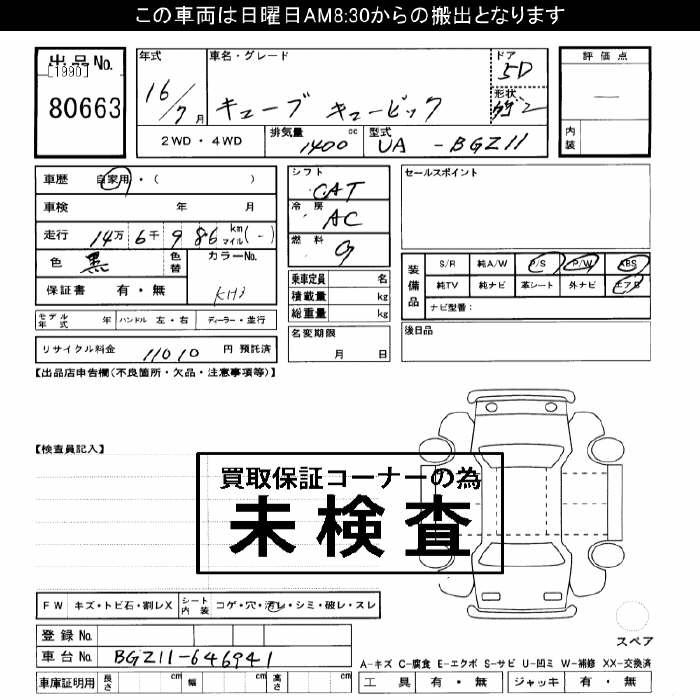 この車両は日曜日AM8:30からの搬出となります
出品No.
[1990]
80663
年式
16/7月
車名・グレード
キューブ キュービック
ドア
5D
形状
評価点
—
内装
2WD・4WD
排気量
1400 cc
型式
UA - BGZ11
車歴 自家用・( )
車検 年 月
走行 14万 6千 9 86 km マイル (-)
色 黒 色替
カラーNo.
KH3
保証書 有・無
シフト
CAT
冷房
AC
燃料
G
セールスポイント
装備品
S/R 純A/W P/S P/W ABS
純TV 純ナビ 革シート 外ナビ エアB
ナビ型番:
乗車定員 名
積載量 kg
総重量 kg
後日品
モデル年式 年 ハンドル 左・右 ディーラー・並行
名変期限
月 日
リサイクル料金 11010 円 預託済
【出品店申告欄(不良箇所・欠品・注意事項等)】
【検査員記入】
買取保証コーナーの為
未検査
FW キズ・トビ石・割レX シート内装 コゲ・穴・汚レ・シミ・破レ・スレ
登録No.
車台No. BGZ11-646941
スペア
A-キズ C-腐食 E-エクボ S-サビ U-凹ミ W-補修 XX-交換済
車庫証明用 長さ cm 幅 cm 高さ cm
工具 有・無 ジャッキ 有・無